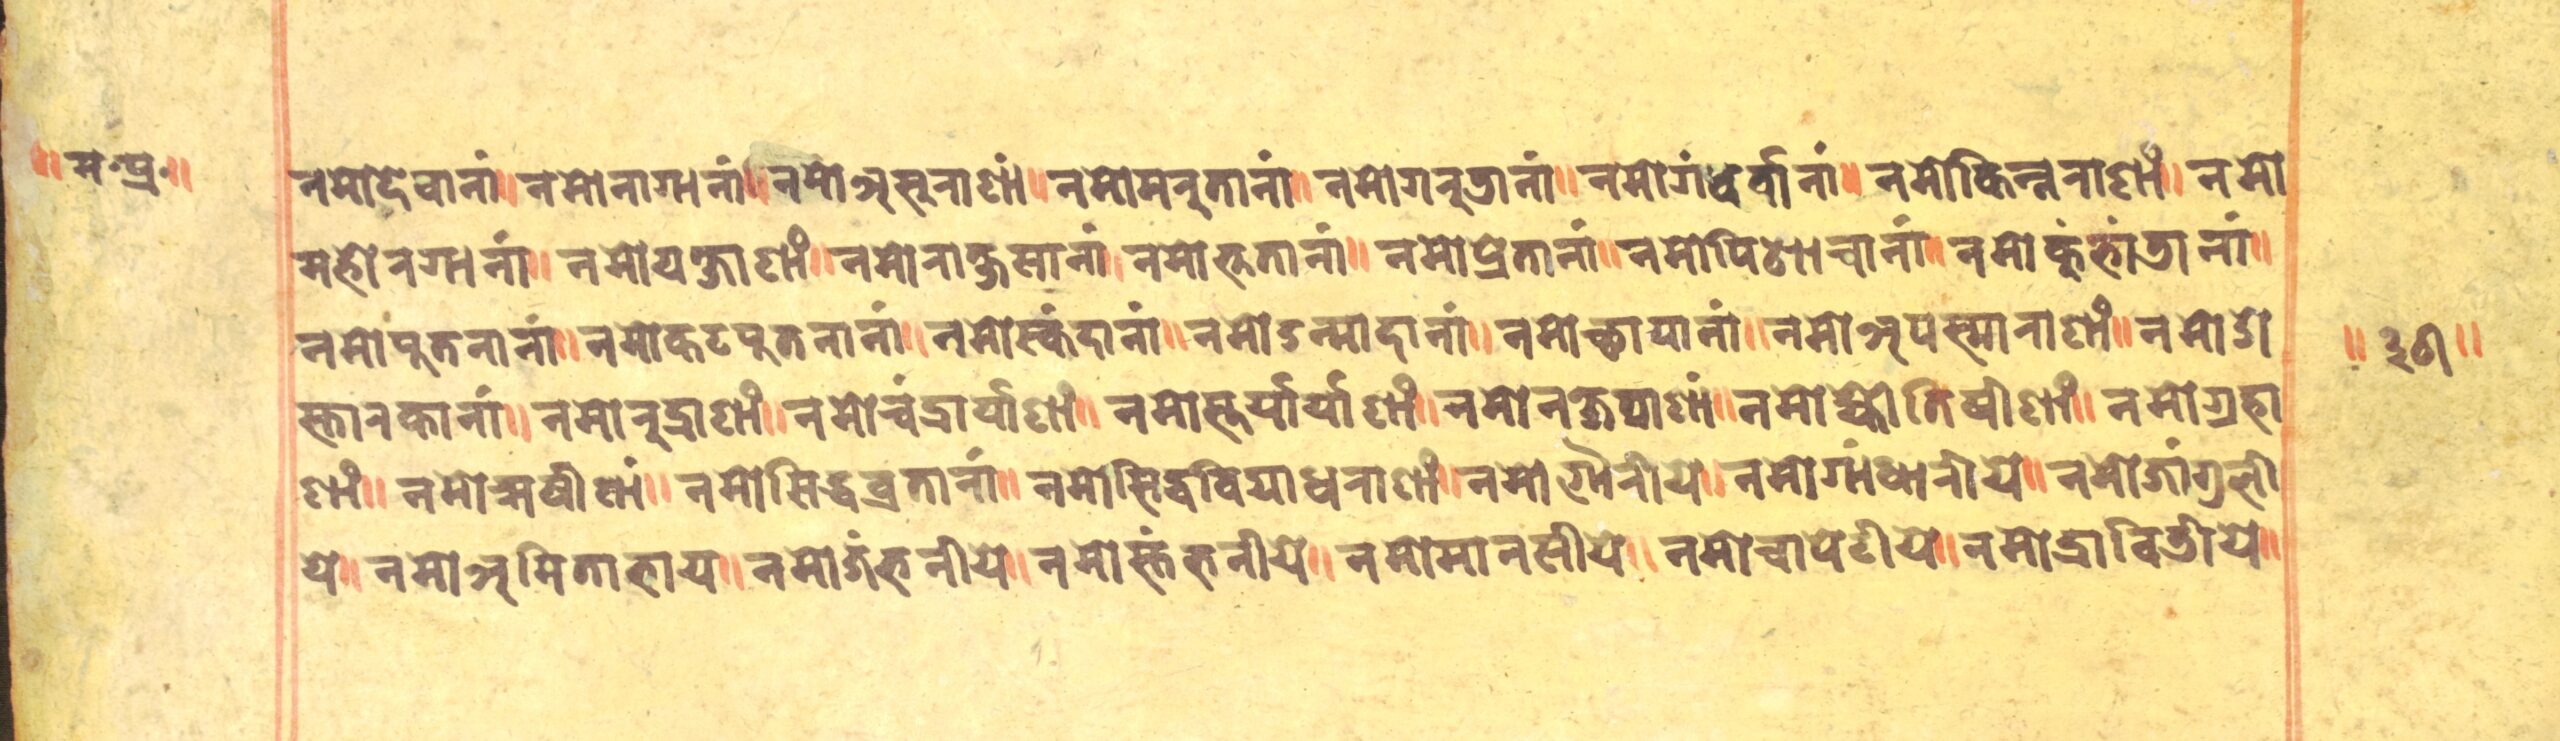 ॥म॰प्र॰॥
नमोदेवानां॥नमोनागानां॥नमोअसुराणां॥नमोमरुतानां॥नमोगरुडानां॥नमोगंधर्वानां॥नमोकिन्नराणां॥नमो
महोरगानां॥नमोयक्षाणां॥नमोराक्षसानां॥नमोभूतानां॥नमोप्रेतानां॥नमोपिशाचानां॥नमोकुंभांडानां॥
नमोपुतनानां॥नमोकटपुतनानां॥नमोस्कंदानां॥नमोउन्मादानां॥नमोच्छायानां॥नमोअपस्माराणां॥नमोओ
स्तारकानां॥नमोरुद्राणां॥नमोचंद्रार्याणां॥नमोसूर्यार्याणां॥नमोनक्षत्राणां॥नमोज्योतिषीणां॥नमोग्रहा
णां॥नमोऋषीणां॥नमोसिद्धव्रतानां॥नमोसिद्धविद्याधराणां॥नमोगौरीये॥नमोगांधारीये॥नमोजांगुली
ये॥नमोअमिताभाय॥नमोजंभनीये॥नमोस्तंभनीये॥नमोमानसीये॥नमोचापेटीये॥नमोद्राविडीये॥
॥३७॥